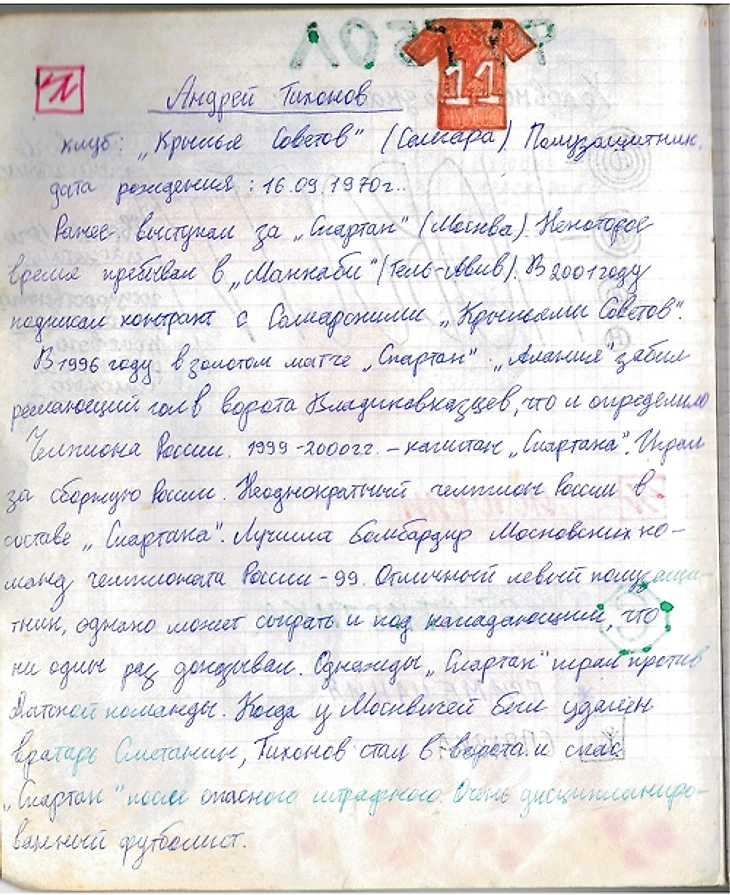 11
Андрей Тихонов
клуб: „Крылья Советов" (Самара). Полузащитник.
дата рождения: 16.09.1970г..
Ранее выступал за „Спартак" (Москва). Некоторое
время пребывал в „Маккаби" (Тель-Авив). В 2001 году
подписал контракт с Самарскими „Крыльями Советов".
В 1996 году в золотом матче „Спартак" - „Алания" забил
решающий гол в ворота Владикавказцев, что и определило
Чемпиона России. 1999-2000гг. – капитан „Спартака". Играл
за сборную России. Неоднократный чемпион России в
составе „Спартака". Лучший бомбардир Московских ко-
манд чемпионата России - 99. Отличный левый полузащи-
тник, однако может сыграть и под нападающими, что
ни один раз доказывал. Однажды „Спартак" играл против
Датской команды. Когда у Москвичей был удалён
вратарь Сметанин, Тихонов стал в ворота и спас
„Спартак" после опасного штрафного. Очень дисциплиниро-
ванный футболист.